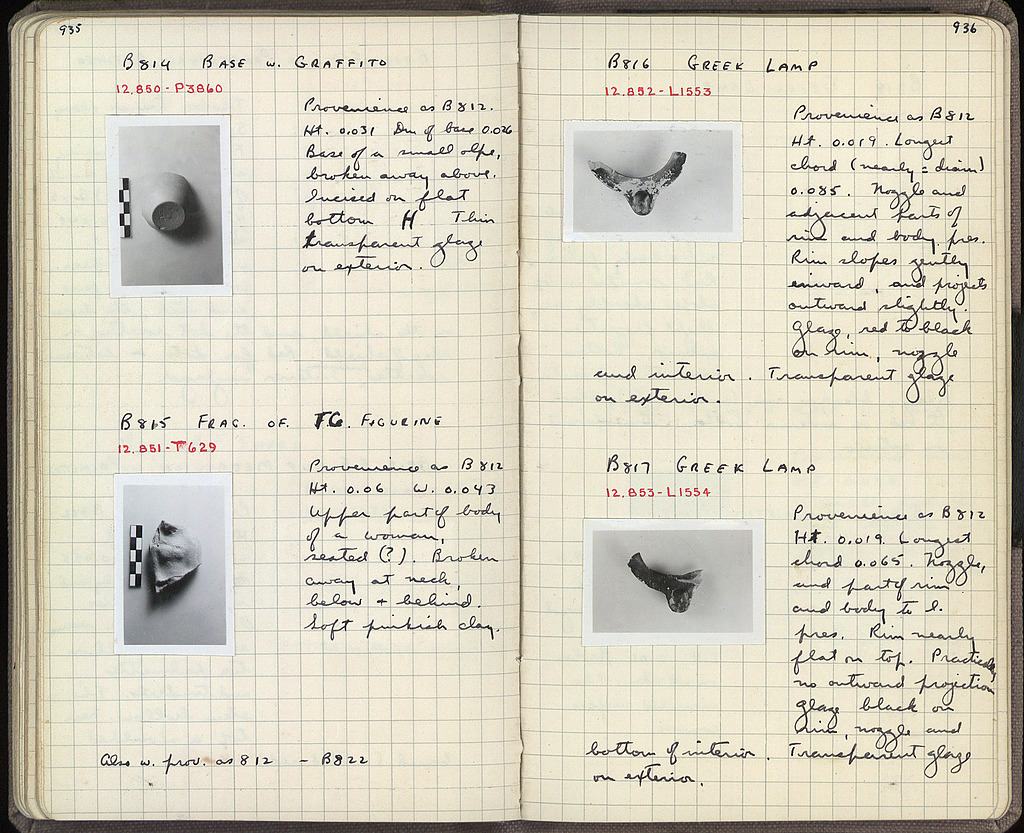 935
B814 BASE W. GRAFFITO
12.850-P3860
Provenience as B812.
Ht. 0.031 Dm of base 0.026
Base of a small olpe,
broken away above.
Incised on flat
bottom H Thin
transparent glaze
on exterior.
B815 FRAG. OF. TC. FIGURINE
12.851-T629
Provenience as B812
Ht. 0.06 W. 0.043
Upper part of body
of a woman,
seated (?). Broken
away at neck,
below + behind.
Soft pinkish clay.
Also w. prov. as 812 - B822
936
B816 GREEK LAMP
12.852-L1553
Provenience as B812
Ht. 0.019. Longest
chord (nearly = diam)
0.085. Nozzle and
adjacent parts of
rim and body pres.
Rim slopes gently
inward, and projects
outward slightly.
Glaze, red to black
on rim, nozzle
and interior. Transparent glaze
on exterior.
B817 GREEK LAMP
12.853-L1554
Provenience as B812
Ht. 0.019. Longest
chord 0.065. Nozzle,
and part of rim
and body to l.
pres. Rim nearly
flat on top. Practically
no outward projection
Glaze black on
rim, nozzle and
bottom of interior. Transparent glaze
on exterior.